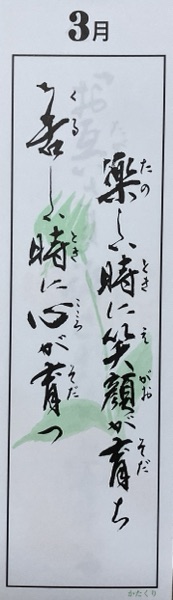 3月
楽しい時に笑顔が育ち
たの とき えがお そだ
苦しい時に心が育つ
くる とき こころ そだ
かたくり